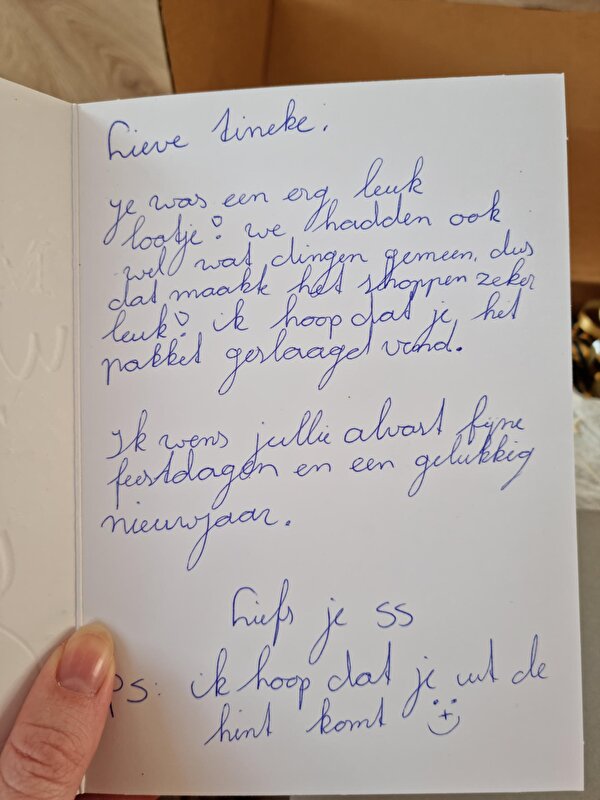 Lieve Tineke,
je was een erg leuk
lootje! we hadden ook
wel wat dingen gemeen, dus
dat maakt het shoppen zeker
leuk! ik hoop dat je het
pakket geslaagd vond.
Ik wens jullie alvast fijne
feestdagen en een gelukkig
nieuwjaar.
Liefs je SS
PS: ik hoop dat je uit de
hint komt